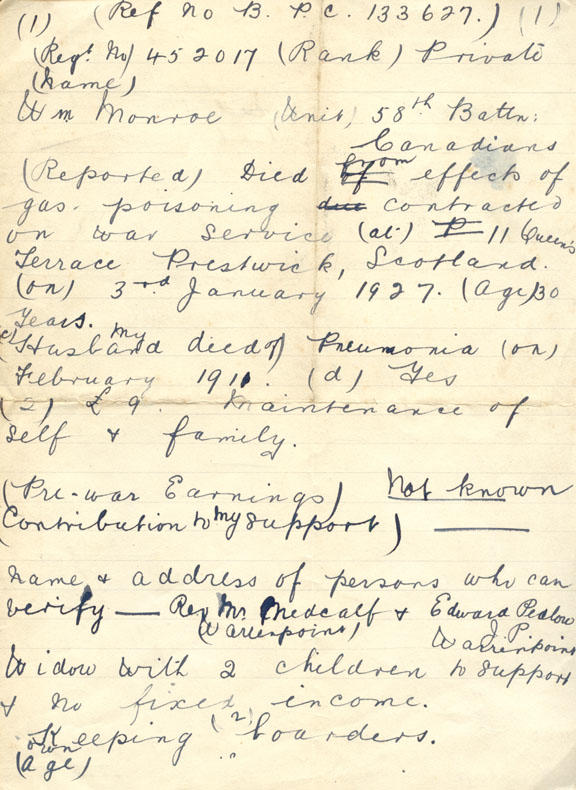 (1) (Ref No B. P. C. 133627.) (1)
(Regt. No) 452017 (Rank) Private
(Name)
Wm Monroe (Unit) 58th Battn:
Canadians
(Reported) Died from effects of
gas poisoning due contracted
on war service (at) P 11 Queen's
Terrace Prestwick, Scotland.
(on) 3rd January 1927. (Age) 30
Years.
(c) My Husband died of) Pneumonia (on)
February 1911. (d) Yes
(2) £9. Maintenance of
self & family.
(Pre-war Earnings) Not known
Contribution to my support)
Name & address of persons who can
verify — Rev Mr Medcalf & Edward Pedlow
(Warrenpoint) J. P.
Warrenpoint
Widow with 2 children to support
& no fixed income.
Keeping (2) boarders.
own
(Age) "